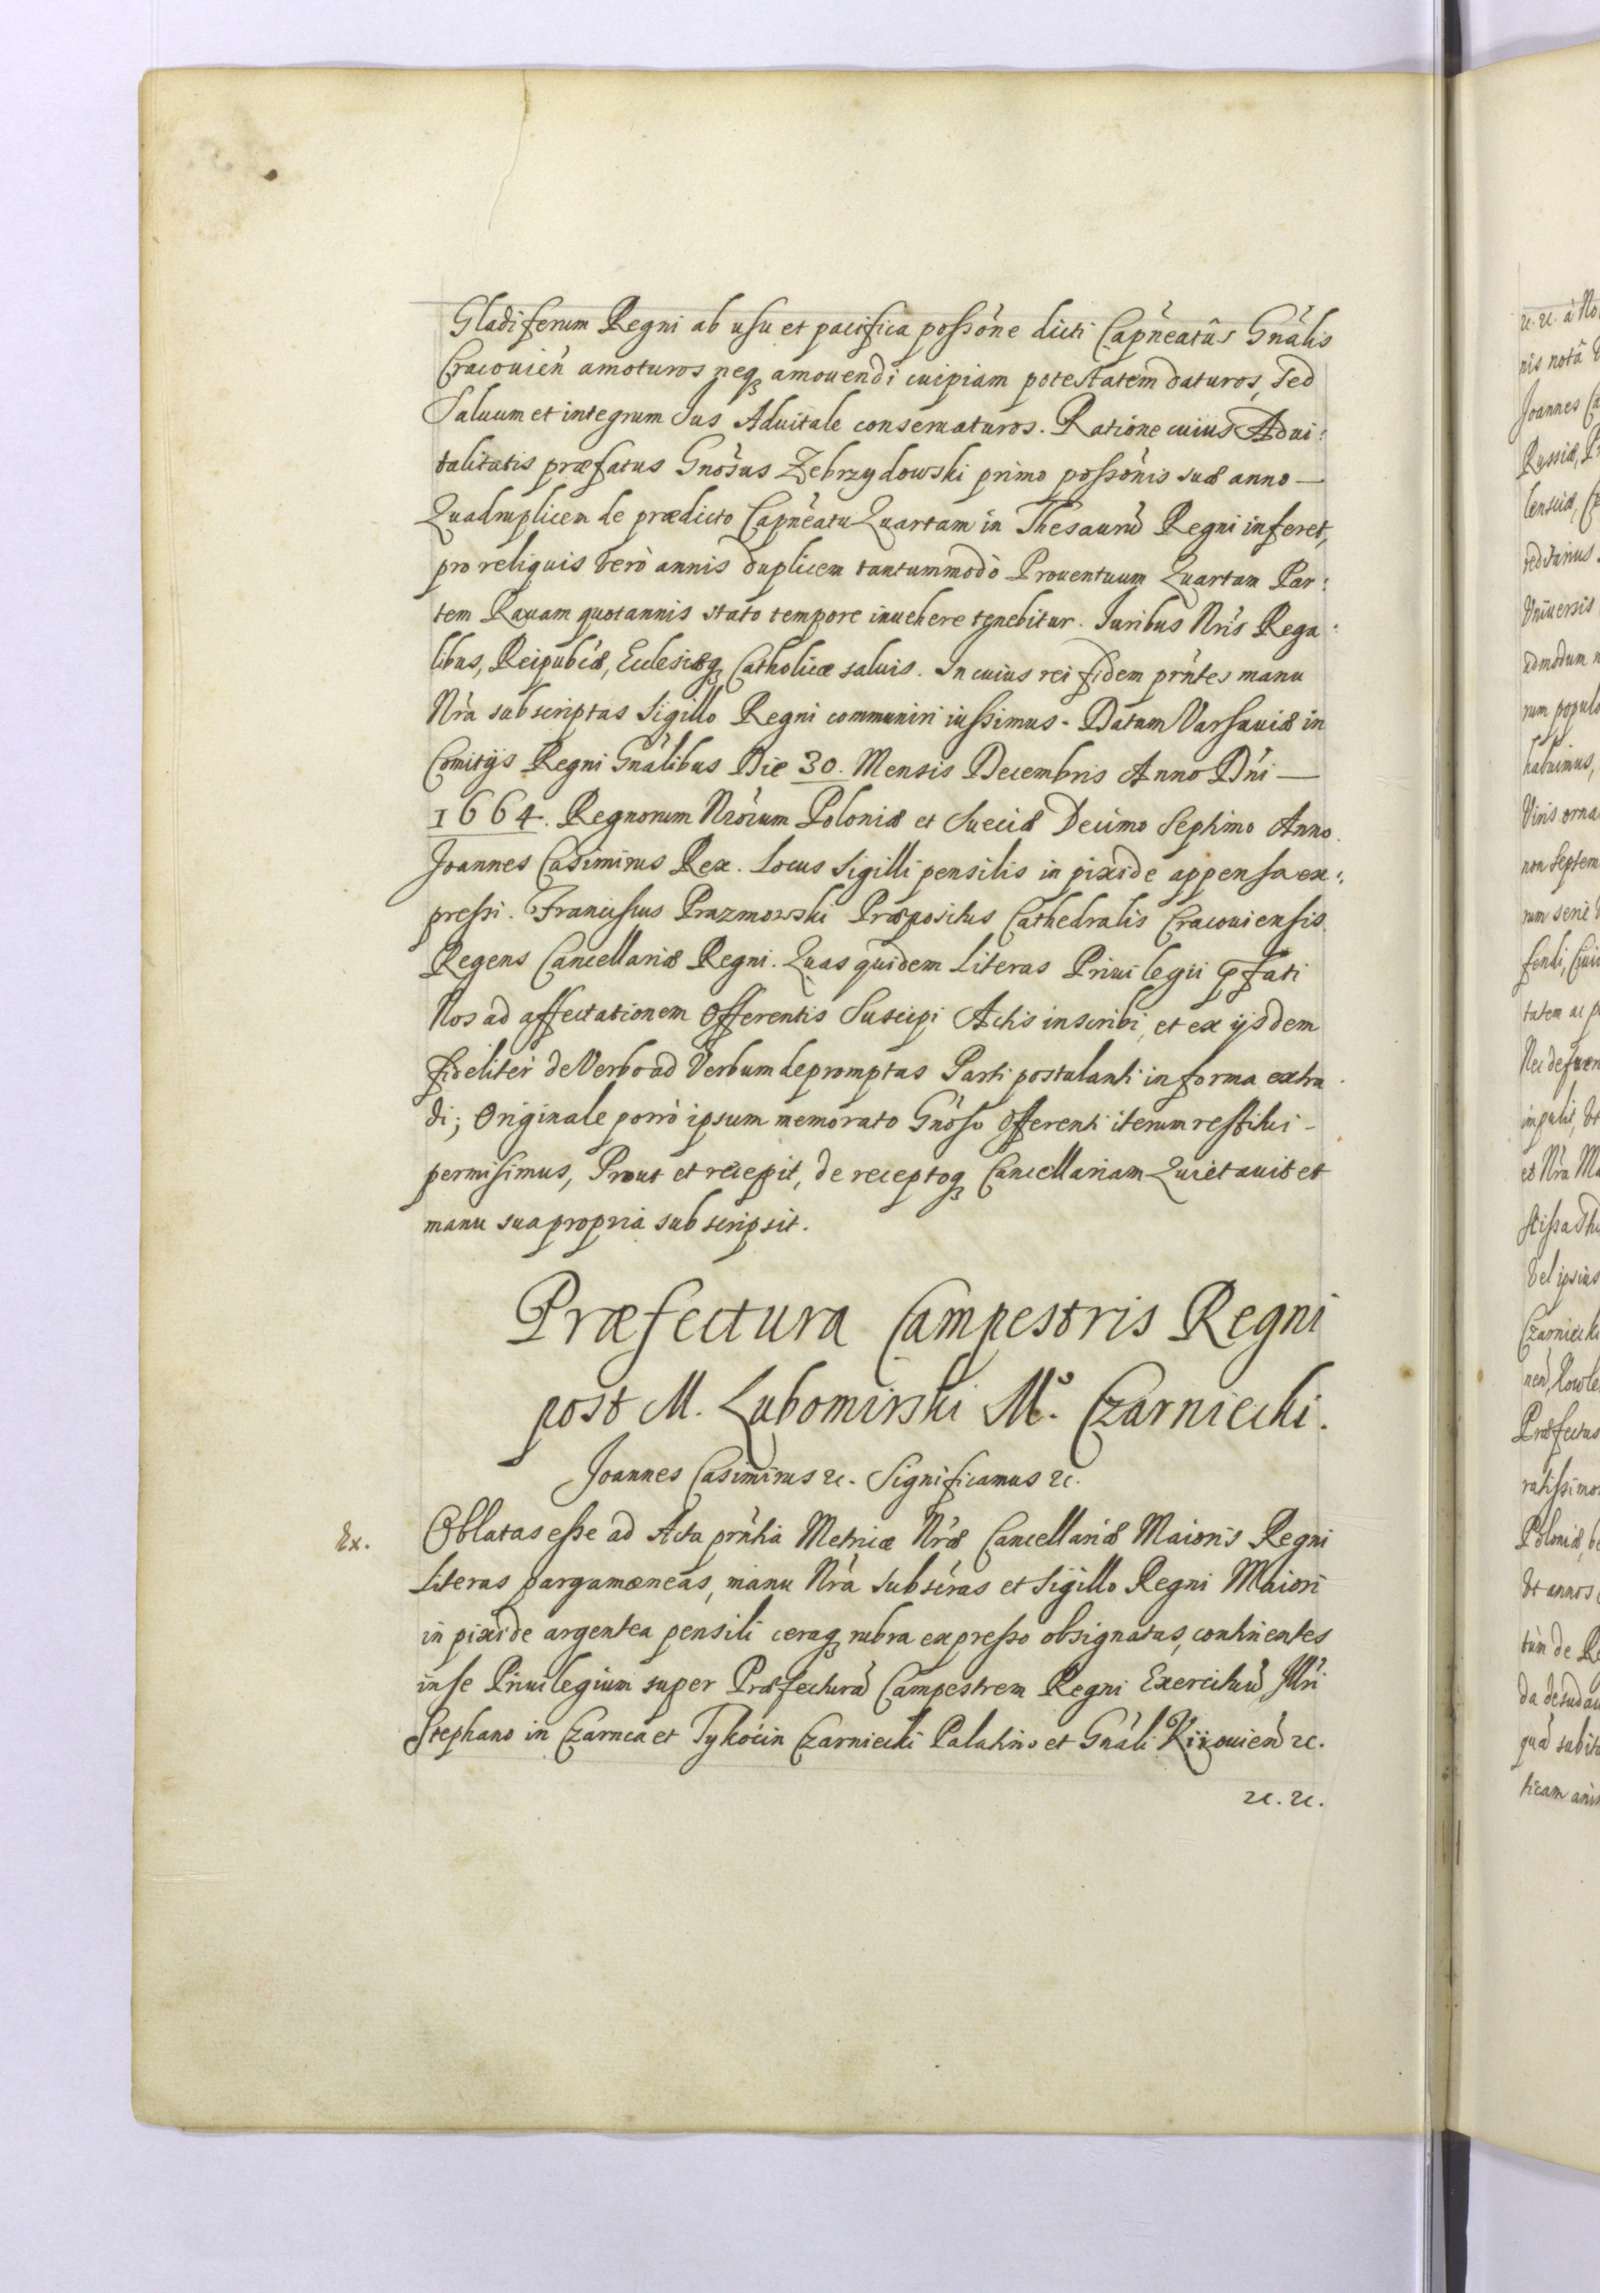 Gladiferum Regni ab usu et pacifica possõne dicti Capñeatûs Gñalis
Cracouieñ amoturos neq₃ amouendi cuipiam potestatem daturos, sed
Saluum et integrum Ius Aduitale conseruaturos. Ratione cuius Adui:
talitatis præfatus Gñosus Zebrzydowski primo possõnis suæ anno —
Quadruplicem de prædicto Capñeatu Quartam in Thesaurũ Regni inferet,
pro reliquis verò annis duplicem tantummodò Prouentuum Quartam Par:
tem Rauam quotannis stato tempore inuehere tenebitur. Iuribus Nris Rega:
libus, Reipubcæ, Ecclesiæq₃ Catholicæ saluis. In cuius rei fidem prntes manu
Nra subscriptas Sigillo Regni communiri iussimus. Datum Varsauiæ in
Comitijs Regni Gñalibus Die 30. Mensis Decembris Anno Dñi —
1664. Regnorum Nrorum Poloniæ et Sueciæ Decimo Septimo Anno.
Joannes Casimirus Rex. Locus Sigilli pensilis in pixide appensa ex:
pressi. Franciscus Prazmowski Præpositus Cathedralis Cracouiensis
Regens Cancellariæ Regni. Quas quidem Literas Priuilegii pfati
Nos ad affectationem Offerentis Suscipi Actis inscribi, et ex ijsdem
fideliter de Verbo ad Verbum depromptas Parti postulanti in forma extra
di; Originale porrò ipsum memorato Gñoso Offerenti iterum restitui -
permisimus, Prout et recepit, de receptoq₃ Cancellariam Quietauit et
manu sua propria subscripsit.
Præfectura Campestris Regni
post M. Lubomirski Mᵒ. Czarniecki.
Joannes Casimirus &c. Significamus &c.
Ex. Oblatas esse ad Acta prntia Metricæ Nræ Cancellariæ Maioris Regni
Literas pargamæneas, manu Nra subscras et Sigillo Regni Maiori
in pixide argentea pensili ceraq₃ rubra expresso obsignatas, continentes
in se Priuilegium super Præfecturã Campestrem Regni Exercituũ Illri
Stephano in Czarnca et Tykocin Czarniecki Palatino et Gñali Kiiouieñ &c.
&c. &c.